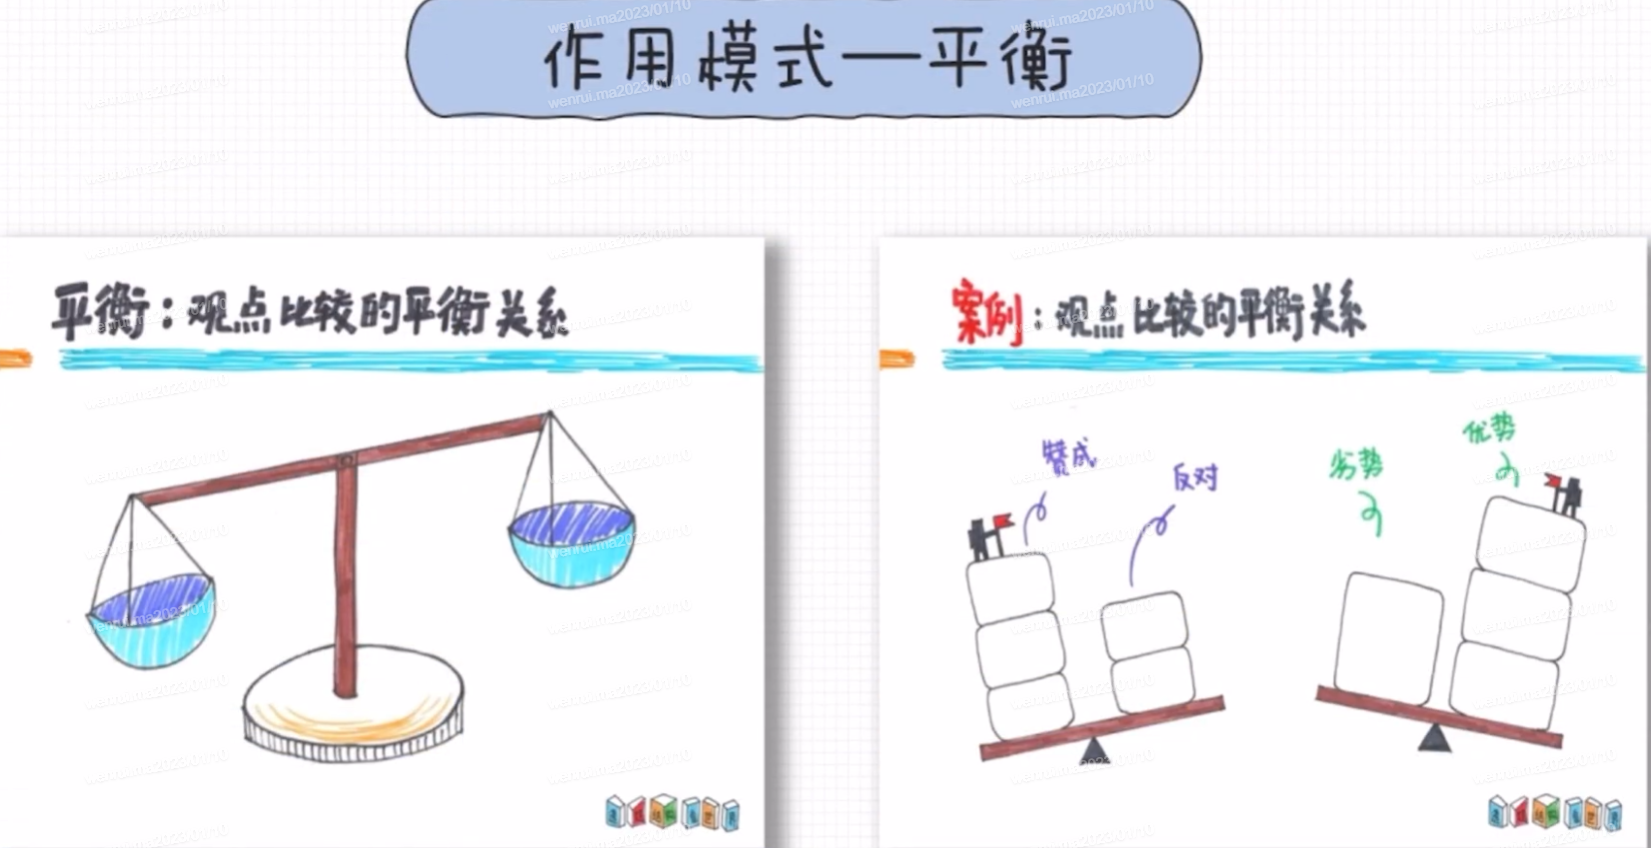 作用模式—平衡
平衡：观点比较的平衡关系
案例：观点比较的平衡关系
赞成
反对
劣势
优势
wenrui.ma2023/01/10